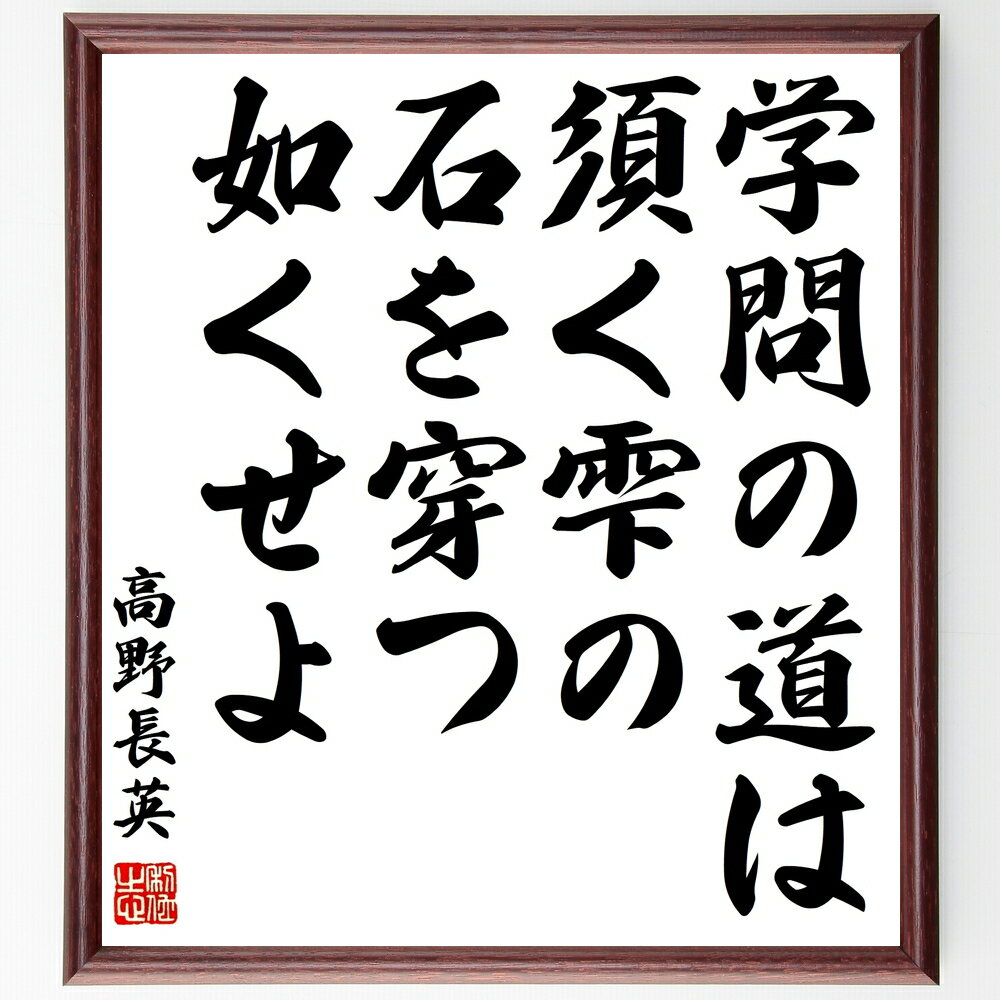 学問の道は
須く雫の
石を穿つ
如くせよ
高野長英